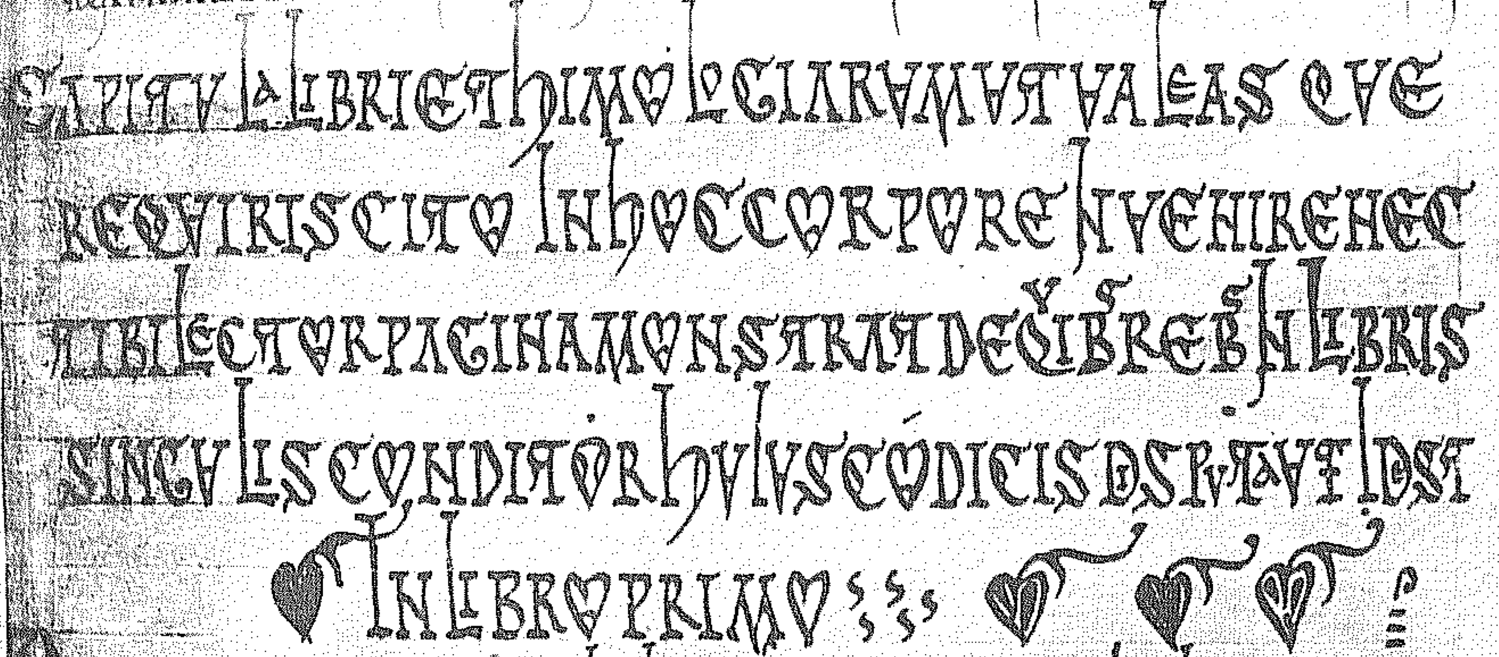 CAPITVLA LIBRI ETHIMOLOGIARVM VT VALEAS QVE
REQVIRIS CITO IN HOC CORPORE INVENIRE HEC
TIBI LECTOR PAGINA MONSTRAT DE QVIBS REBS IN LIBRIS
SINGVLIS CONDITOR HVIVS CODICIS DISPVTAVIT IDST
IN LIBRO PRIMO